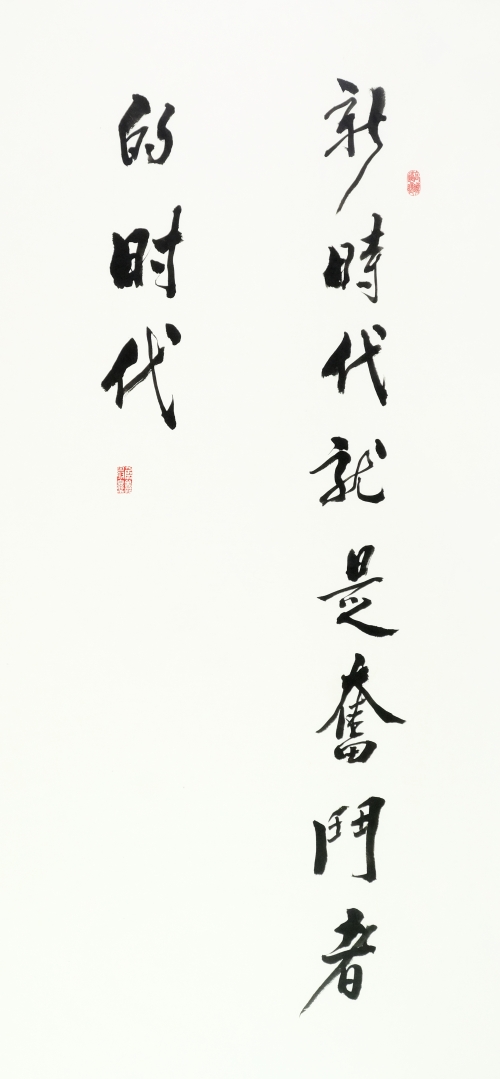 新時代就是奮鬥者
的时代